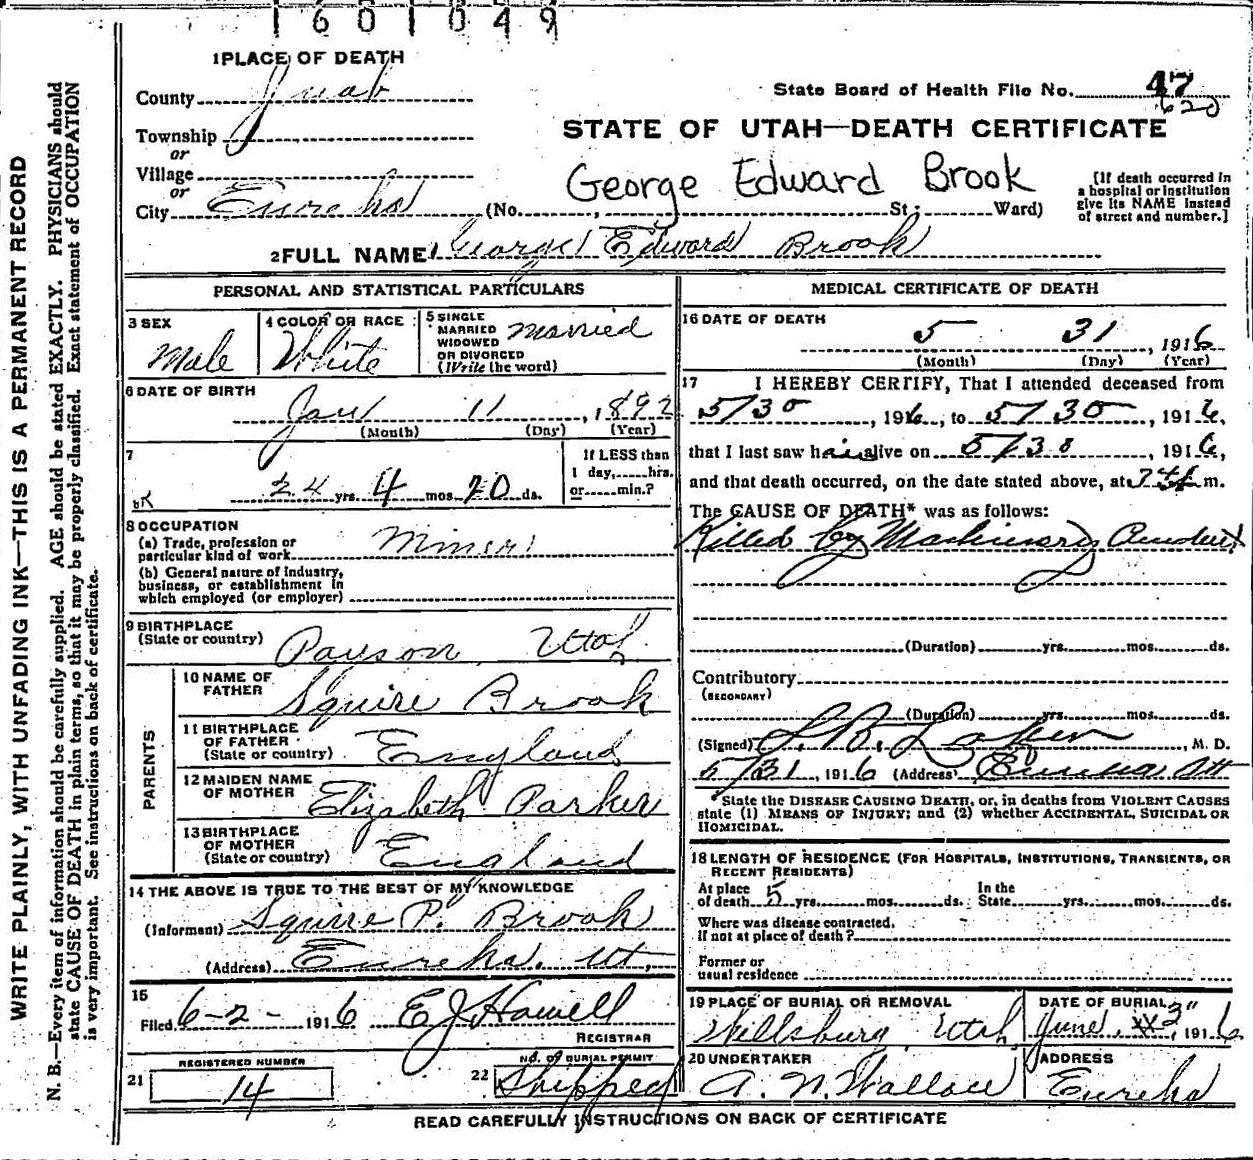 1601049
1 PLACE OF DEATH
County Juab
State Board of Health File No. 47
620
Township
or
Village
or
City Eureka (No. , St; Ward)
STATE OF UTAH—DEATH CERTIFICATE
George Edward Brook
[If death occurred in
a hospital or institution
give its NAME instead
of street and number.]
2 FULL NAME George Edward Brook
PERSONAL AND STATISTICAL PARTICULARS
3 SEX
Male
4 COLOR OR RACE
White
5 SINGLE
MARRIED
WIDOWED
OR DIVORCED
(Write the word)
Married
6 DATE OF BIRTH
Jan 11, 1892
(Month) (Day) (Year)
7
24 yrs. 4 mos. 20 ds.
If LESS than
1 day, hrs.
or min.?
8 OCCUPATION
(a) Trade, profession or
particular kind of work Miner
(b) General nature of Industry,
business, or establishment in
which employed (or employer)
9 BIRTHPLACE
(State or country) Payson, Utah
PARENTS
10 NAME OF
FATHER Squire Brook
11 BIRTHPLACE
OF FATHER
(State or country) England
12 MAIDEN NAME
OF MOTHER Elizabeth Parker
13 BIRTHPLACE
OF MOTHER
(State or country) England
14 THE ABOVE IS TRUE TO THE BEST OF MY KNOWLEDGE
(Informant) Squire P. Brook
(Address) Eureka, Ut.
15
Filed 6-2-, 1916 E J Howell
REGISTRAR
REGISTERED NUMBER
21 14
NO. OF BURIAL PERMIT
22 Shipped
MEDICAL CERTIFICATE OF DEATH
16 DATE OF DEATH
5 31, 1916
(Month) (Day) (Year)
17 I HEREBY CERTIFY, That I attended deceased from
5/30, 1916, to 5/30, 1916,
that I last saw him alive on 5/30, 1916,
and that death occurred, on the date stated above, at m.
The CAUSE OF DEATH* was as follows:
Killed by Machinery Accident
(Duration) yrs. mos. ds.
Contributory
(SECONDARY)
(Duration) yrs. mos. ds.
(Signed) , M. D.
5/31, 1916 (Address) Eureka Ut
*State the DISEASE CAUSING DEATH, or, in deaths from VIOLENT CAUSES
state (1) MEANS OF INJURY; and (2) whether ACCIDENTAL, SUICIDAL OR
HOMICIDAL.
18 LENGTH OF RESIDENCE (FOR HOSPITALS, INSTITUTIONS, TRANSIENTS, OR
RECENT RESIDENTS)
At place
of death 5 yrs. mos. ds.
In the
State yrs. mos. ds.
Where was disease contracted,
If not at place of death?
Former or
usual residence
19 PLACE OF BURIAL OR REMOVAL
Utah
DATE OF BURIAL
June 3", 1916
20 UNDERTAKER
A. N. Wallace
ADDRESS
Eureka
READ CAREFULLY INSTRUCTIONS ON BACK OF CERTIFICATE
WRITE PLAINLY, WITH UNFADING INK—THIS IS A PERMANENT RECORD
N. B.—Every item of information should be carefully supplied. AGE should be stated EXACTLY. PHYSICIANS should
state CAUSE OF DEATH in plain terms, so that it may be properly classified. Exact statement of OCCUPATION
is very important. See instructions on back of certificate.